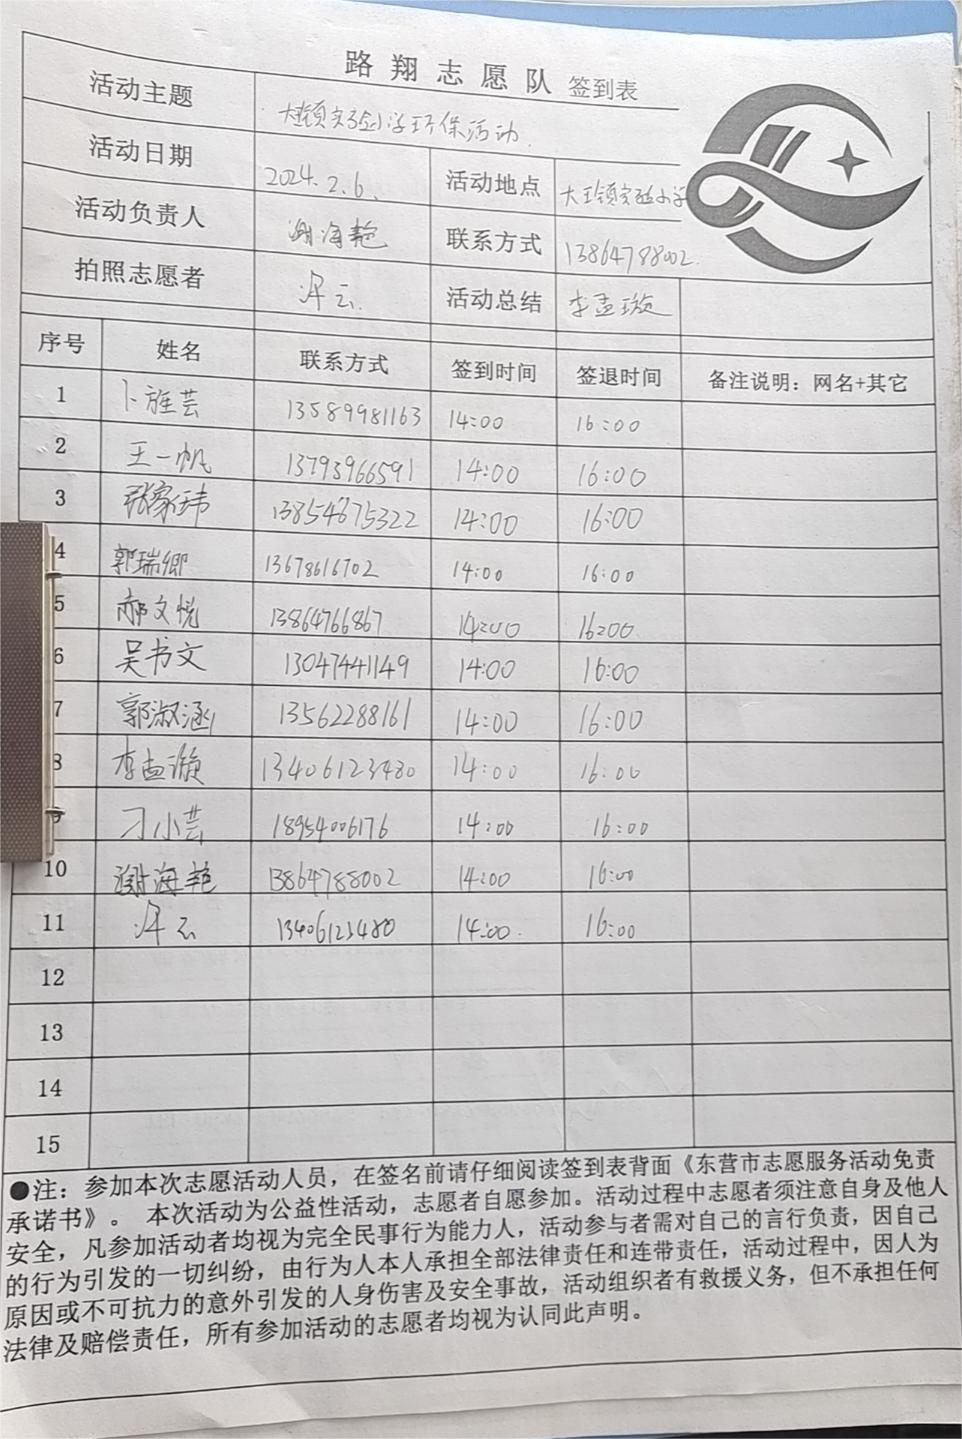 路翔志愿队 签到表
活动主题 大王镇实验小学环保活动
活动日期 2024.2.6. 活动地点 大王镇实验小学
活动负责人 谢海艳 联系方式 13864788002
拍照志愿者 云 活动总结 李孟璇
序号 姓名 联系方式 签到时间 签退时间 备注说明：网名+其它
1 卜旌芸 13589981163 14:00 16:00
2 王一帆 13793966591 14:00 16:00
3 张家玮 13854675322 14:00 16:00
4 郭瑞卿 13678616702 14:00 16:00
5 郝文悦 13864766867 14:00 16:00
6 吴书文 13047441149 14:00 16:00
7 郭淑涵 13562288161 14:00 16:00
8 李孟璇 13406123480 14:00 16:00
9 刁小芸 18954006176 14:00 16:00
10 谢海艳 13864788002 14:00 16:00
11 云 13406123480 14:00. 16:00
12
13
14
15
●注：参加本次志愿活动人员，在签名前请仔细阅读签到表背面《东营市志愿服务活动免责
承诺书》。 本次活动为公益性活动，志愿者自愿参加。活动过程中志愿者须注意自身及他人
安全，凡参加活动者均视为完全民事行为能力人，活动参与者需对自己的言行负责，因自己
的行为引发的一切纠纷，由行为人本人承担全部法律责任和连带责任，活动过程中，因人为
原因或不可抗力的意外引发的人身伤害及安全事故，活动组织者有救援义务，但不承担任何
法律及赔偿责任，所有参加活动的志愿者均视为认同此声明。